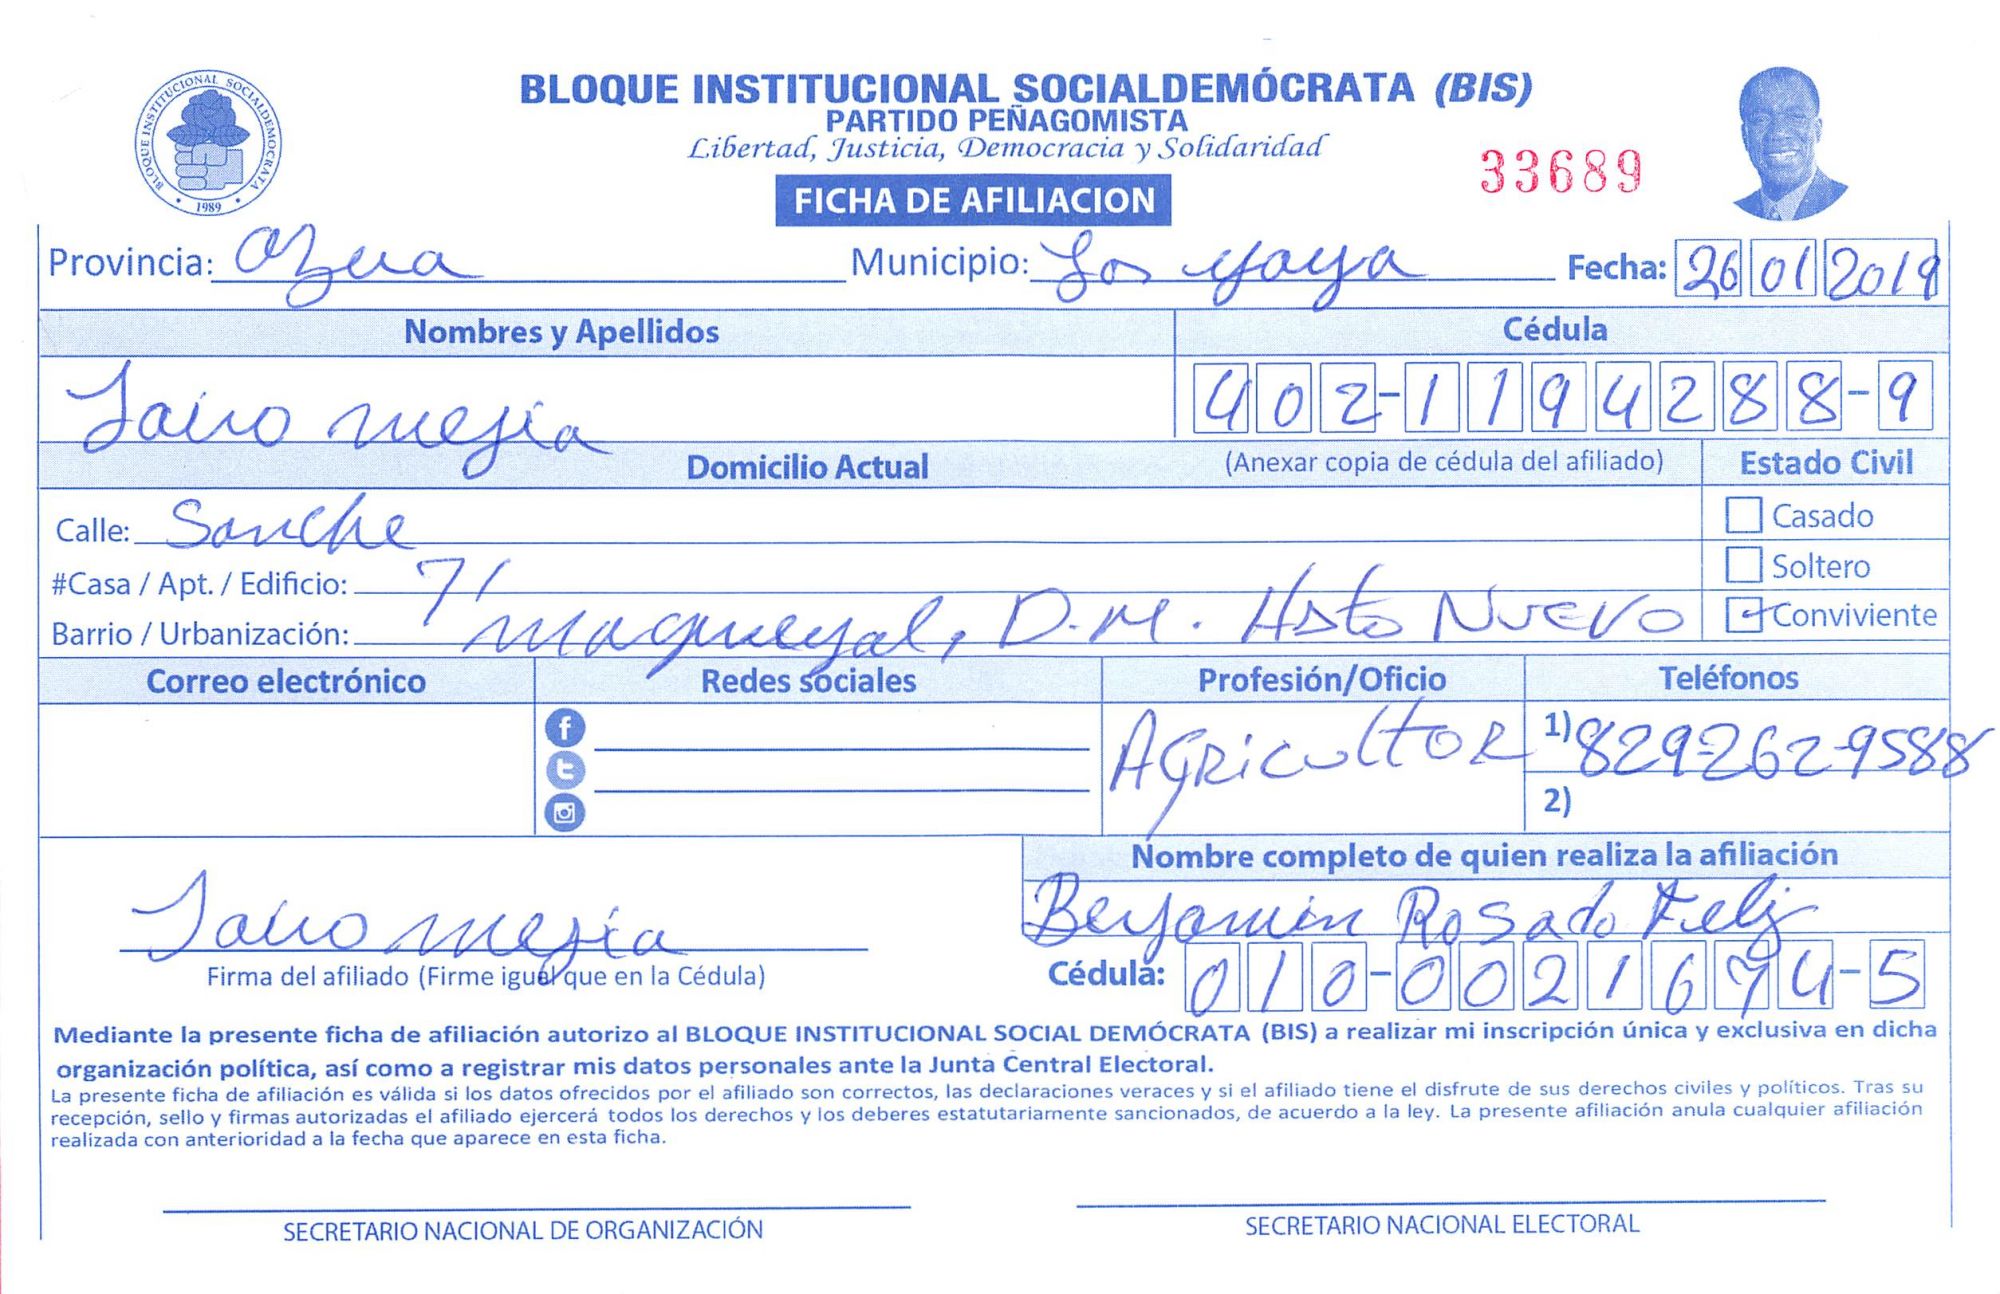 BLOQUE INSTITUCIONAL SOCIALDEMOCRATA
1989
BLOQUE INSTITUCIONAL SOCIALDEMÓCRATA (BIS)
PARTIDO PEÑAGOMISTA
Libertad, Justicia, Democracia y Solidaridad
33689
FICHA DE AFILIACION
Provincia: Azua Municipio: Los Yaya Fecha: 26 01 2019
Nombres y Apellidos Cédula
Jairo mejia 402-1194288-9
Domicilio Actual (Anexar copia de cédula del afiliado) Estado Civil
Calle: Sanche Casado
#Casa / Apt. / Edificio: 71 Soltero
Barrio / Urbanización: magueyal, D.M. Hato Nuevo Conviviente
Correo electrónico Redes sociales Profesión/Oficio Teléfonos
Agricultor 1) 829262-9588
2)
Nombre completo de quien realiza la afiliación
Jairo mejia Benjamin Rosado Feliz
Firma del afiliado (Firme igual que en la Cédula) Cédula: 010-0021674-5
Mediante la presente ficha de afiliación autorizo al BLOQUE INSTITUCIONAL SOCIAL DEMÓCRATA (BIS) a realizar mi inscripción única y exclusiva en dicha
organización política, así como a registrar mis datos personales ante la Junta Central Electoral.
La presente ficha de afiliación es válida si los datos ofrecidos por el afiliado son correctos, las declaraciones veraces y si el afiliado tiene el disfrute de sus derechos civiles y políticos. Tras su
recepción, sello y firmas autorizadas el afiliado ejercerá todos los derechos y los deberes estatutariamente sancionados, de acuerdo a la ley. La presente afiliación anula cualquier afiliación
realizada con anterioridad a la fecha que aparece en esta ficha.
SECRETARIO NACIONAL DE ORGANIZACIÓN SECRETARIO NACIONAL ELECTORAL